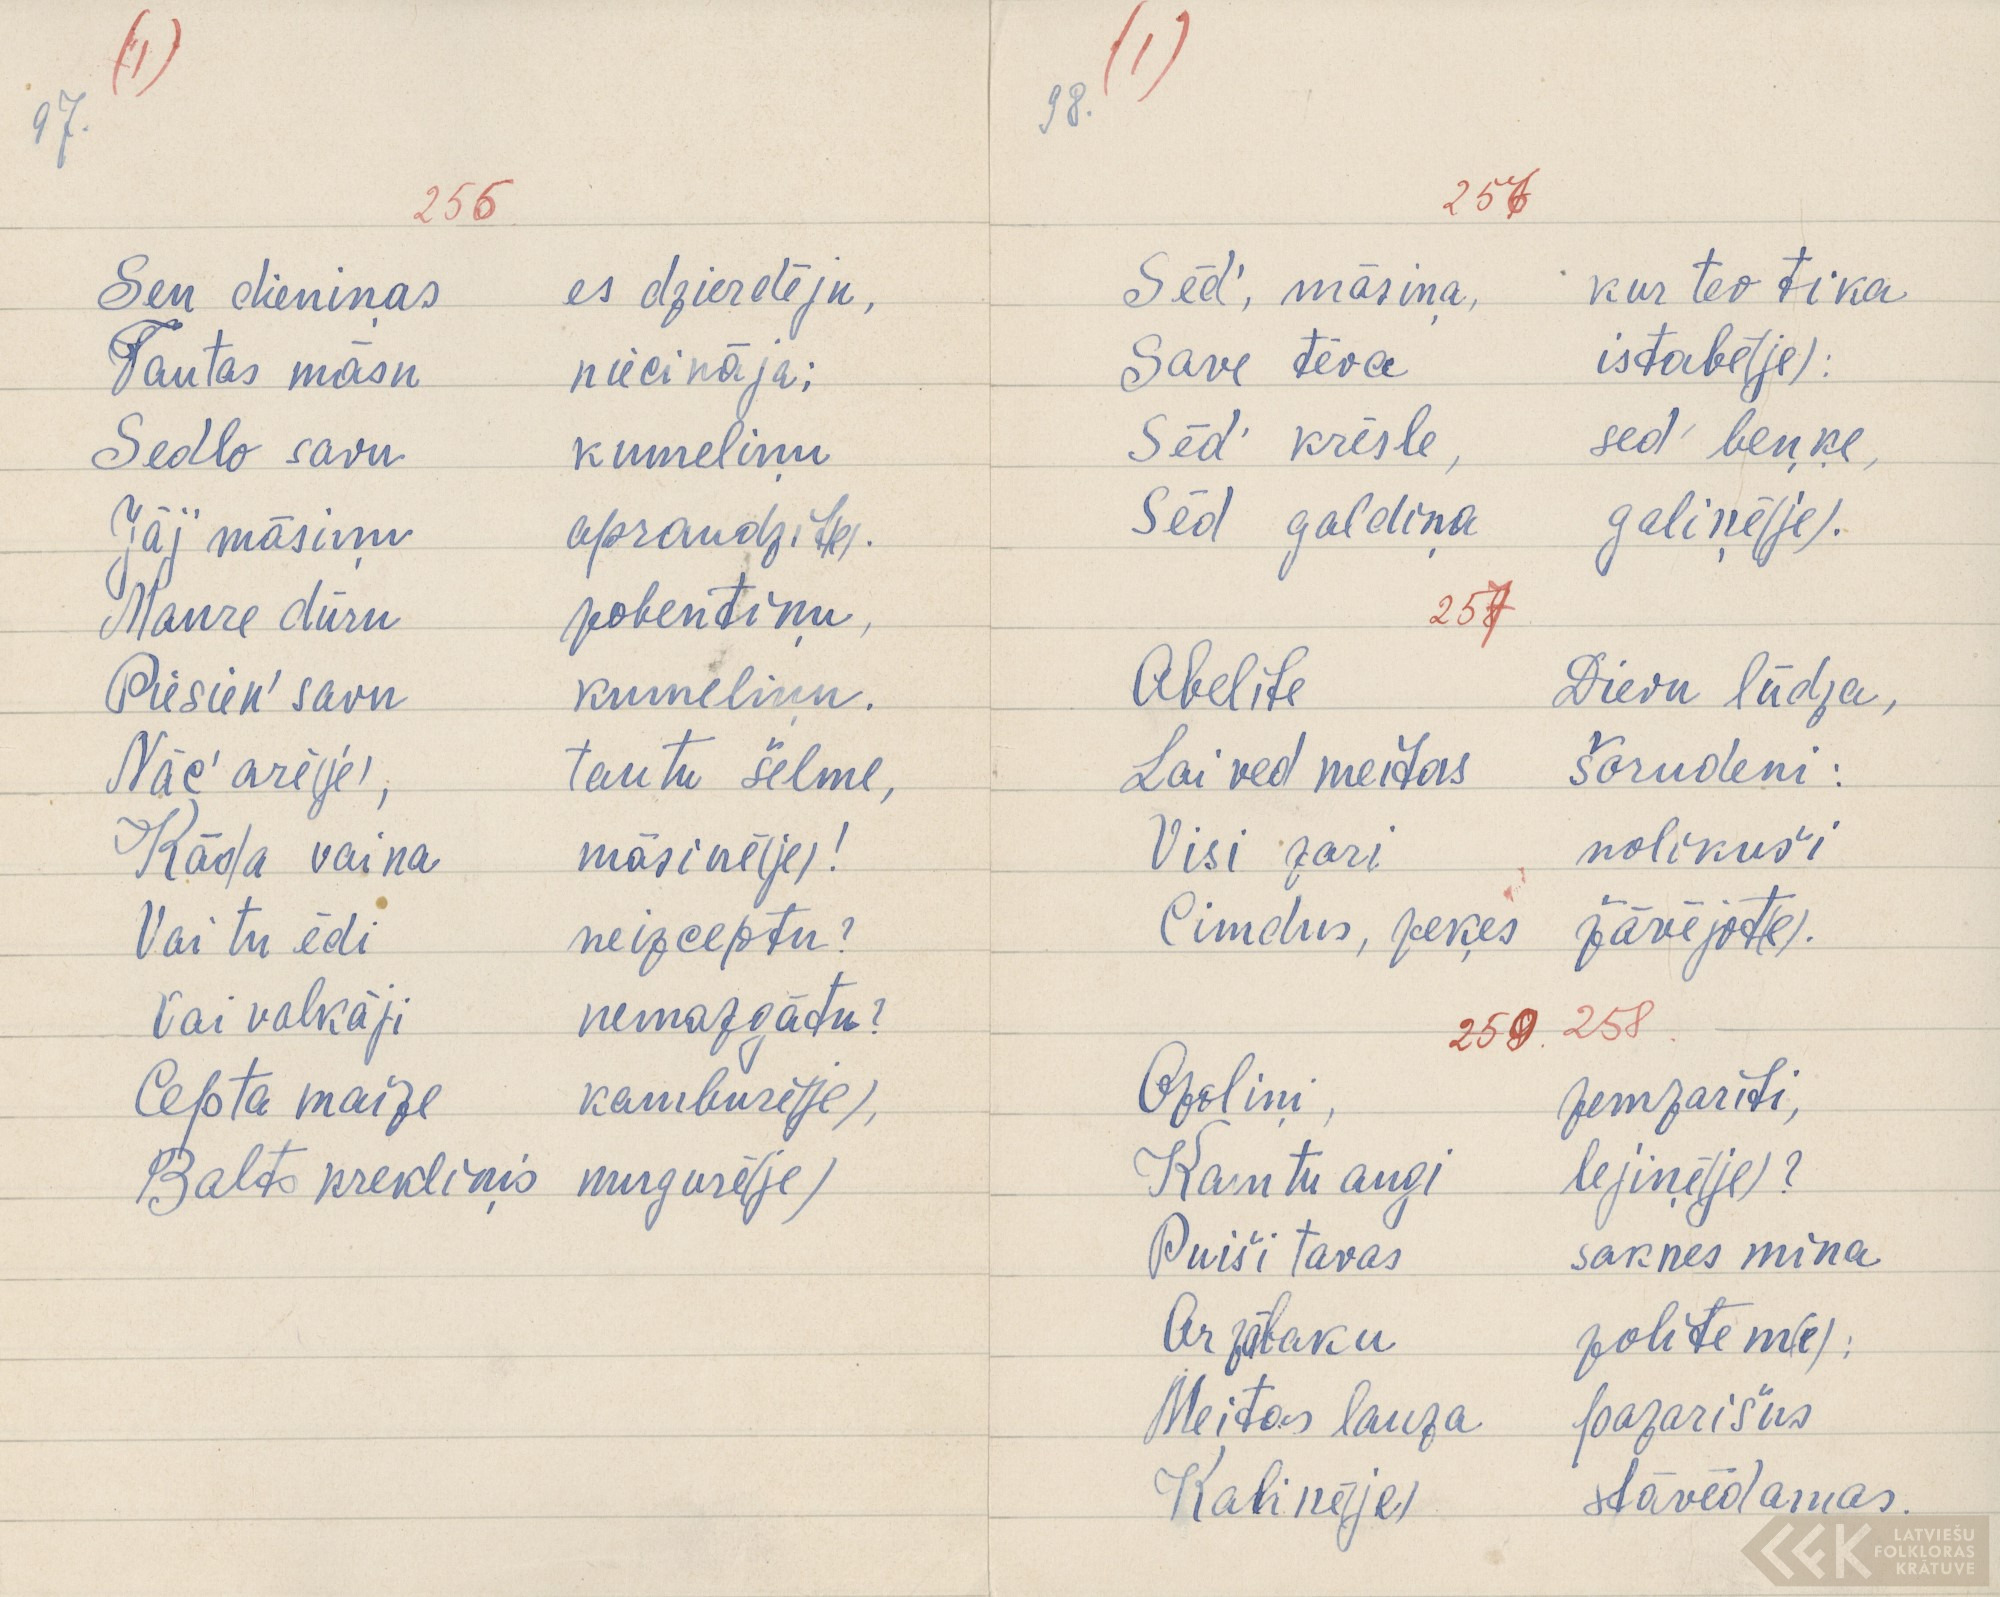 (1)
97.
256
Sen dieniņas es dzierdēju,
Tautas māsu niecināja;
Sedlo savu kumeliņu
Jāj' māsiņu apraudzīt(e).
Maure dūru pobentiņu,
Piesien' savu kumeliņu.
Nāc' arē(je), tautu šelme,
Kāda vaina māsinē(je)!
Vai tu ēdi neizceptu?
Vai valkāji nemazgātu?
Cepta maize kamburē(je),
Balts krekliņis nurgurē(je)
(1)
98.
257
Sēd', māsiņa, kur tev tika
Save tēva istabē(je):
Sēd' krēsle, sed' beņķe,
Sēd galdiņa galiņē(je).
257
Abelīte Dievu lūdza,
Lai ved meitas šorudeni:
Visi zari nolikuši
Cimdus, zeķes žāvējot(e).
259. 258.
Ozoliņi, zemzarīti,
Kam tu augi lejiņē(je)?
Puiši tavas saknes mina
Ar zābaku zolītem(e):
Meitas lauza pazarišus
Kalinē(je) stāvēdamas.
LATVIEŠU
FOLKLORAS
KRĀTUVE